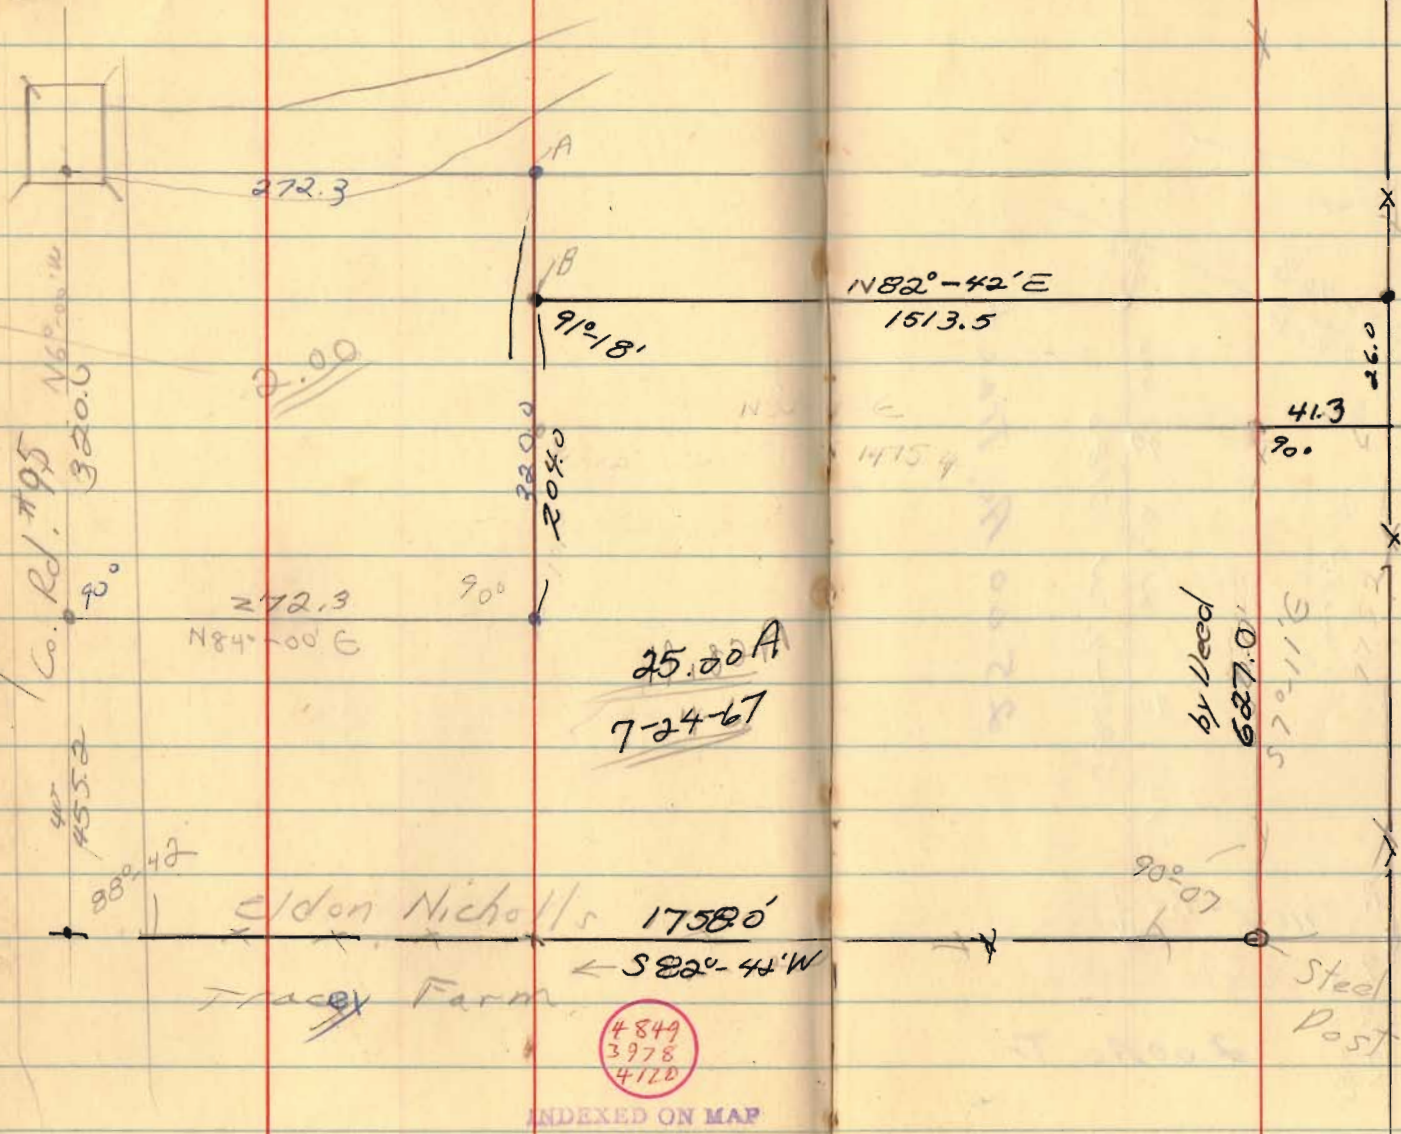 A
272.3
B
N82°-42'E
1513.5
91°-18'
N6°-00'W
320.0
2.00
26.0
41.3
90°
320.0
204.0
1475.4
Co. Rd. #95
90°
272.3
90°
N84°-00'E
25.00 A
7-24-67
by Deed
627.0'
S7°-11'E
455.2
88°-42
90°-07
Eldon Nicholls
1758.0'
← S82°-42'W
Tracey Farm
Steel
Post
4849
3978
4120
INDEXED ON MAP